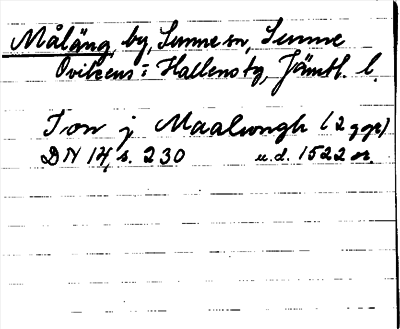 Målång, by, Sunne sn, Sunne
Ovikens o. Hallens tg, Jämtl. l.
Ion j Maalongh (2 ggr)
DN 14, s. 230 u.d. 1522 or.